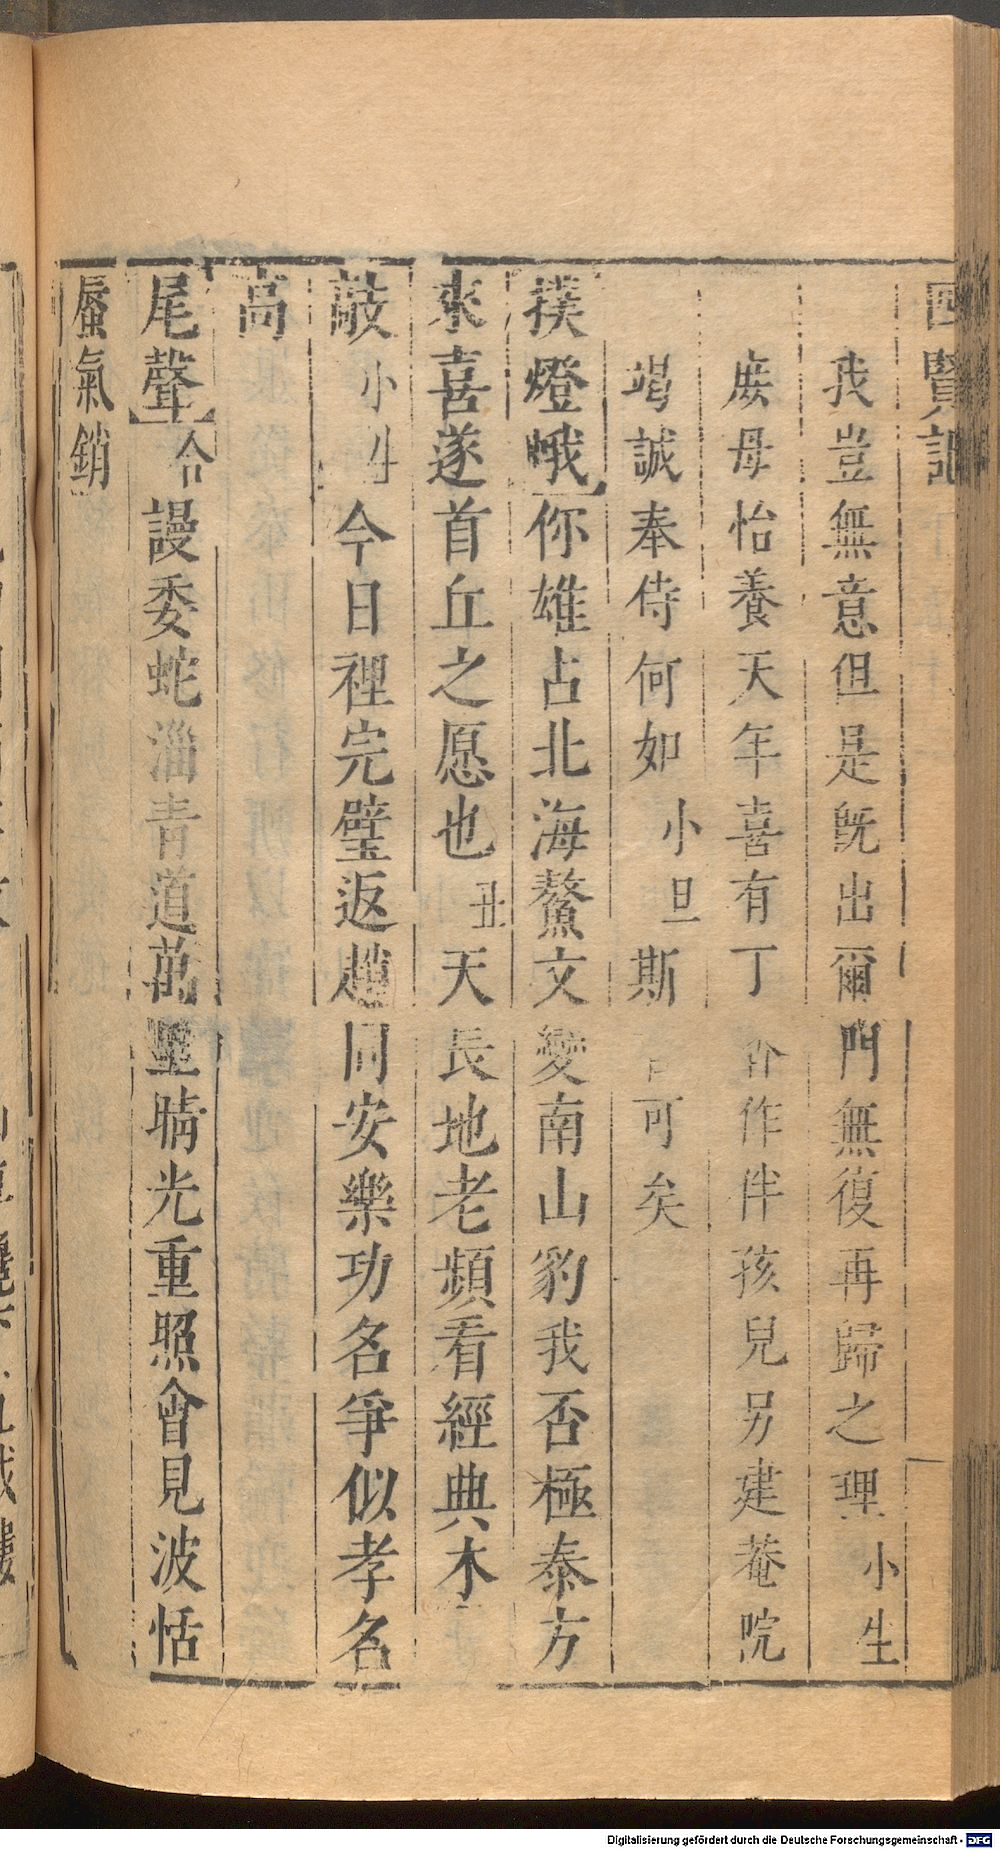 四賢記
我豈無意但是既出爾門無復再歸之理小生
庶母怡養天年喜有丁香作伴孩兒另建菴院
竭誠奉侍何如小旦斯可矣
撲燈蛾你雄占北海鰲文變南山豹我否極泰方
來喜遂首丘之愿也丑天長地老頻看經典木
敲小生今日裡完璧返趙同安樂功名爭似孝名
高
尾聲合謾委蛇淄青道萬壑晴光重照會見波恬
蜃氣銷
Digitalisierung gefördert durch die Deutsche Forschungsgemeinschaft - DFG